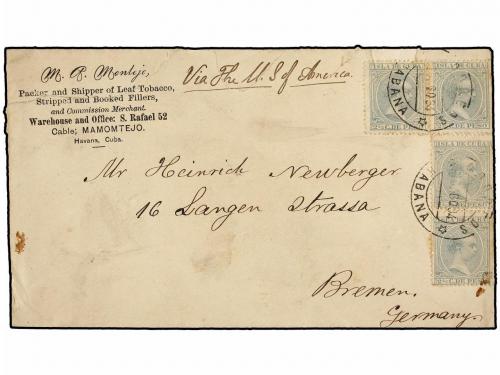 M. A. Montejo,
Packer and Shipper of Leaf Tobacco,
Stripped and Booked Fillers,
and Commission Merchant.
Warehouse and Office: S. Rafael 52
Cable; MAMOMTEJO.
Havana, Cuba.
Via The U. S of America.
ISLA DE CUBA
ISLA DE CUBA
HABANA
Mr Heinrich Newberger
16 Langen Strassa
Bremen.
Germany.
HABANA